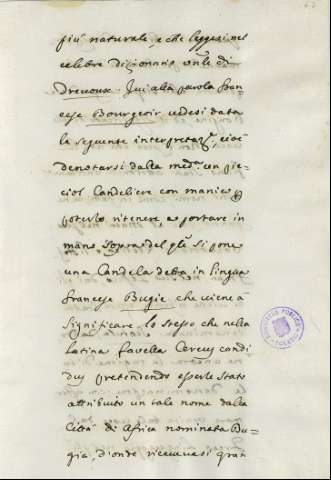 più naturale, e che leggesi nel
celebre Dizionario univle di
Drevoux. Ivi alla parola fran=
cese Bourgeoir vedesi data
la seguente interpretaz.e, cioè
denotarsi dalla med.a un pic=
ciol Candeliere con manico p
poterlo ritenere e portare in
mano sopra del qle si pone
una Candela detta in lingua
francese Bugie che viene a
significare lo stesso che nella
Latina favella Cereus candi
dus pretendendo esserle stato
attribuito un tale nome dalla
Città di Africa nominata Bu=
gia, d'onde ricavavasi gran